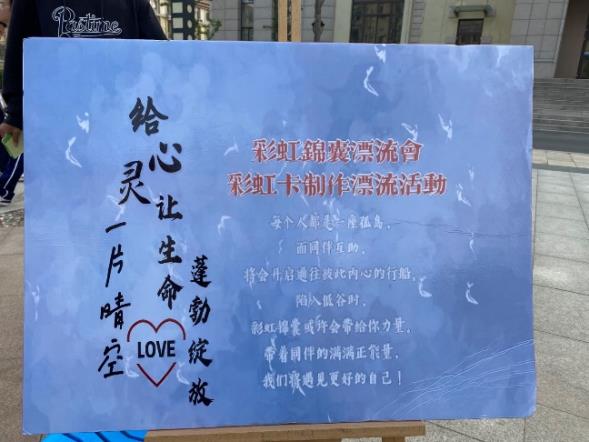 Pastime
给心灵一片晴空
让生命
蓬勃绽放
LOVE
彩虹錦囊漂流會
彩虹卡制作漂流活動
每个人都是一座孤岛,
而同伴互助,
将会开启通往彼此内心的行船,
陷入低谷时,
彩虹锦囊或许会带给你力量,
带着同伴的满满正能量,
我们将遇见更好的自己!